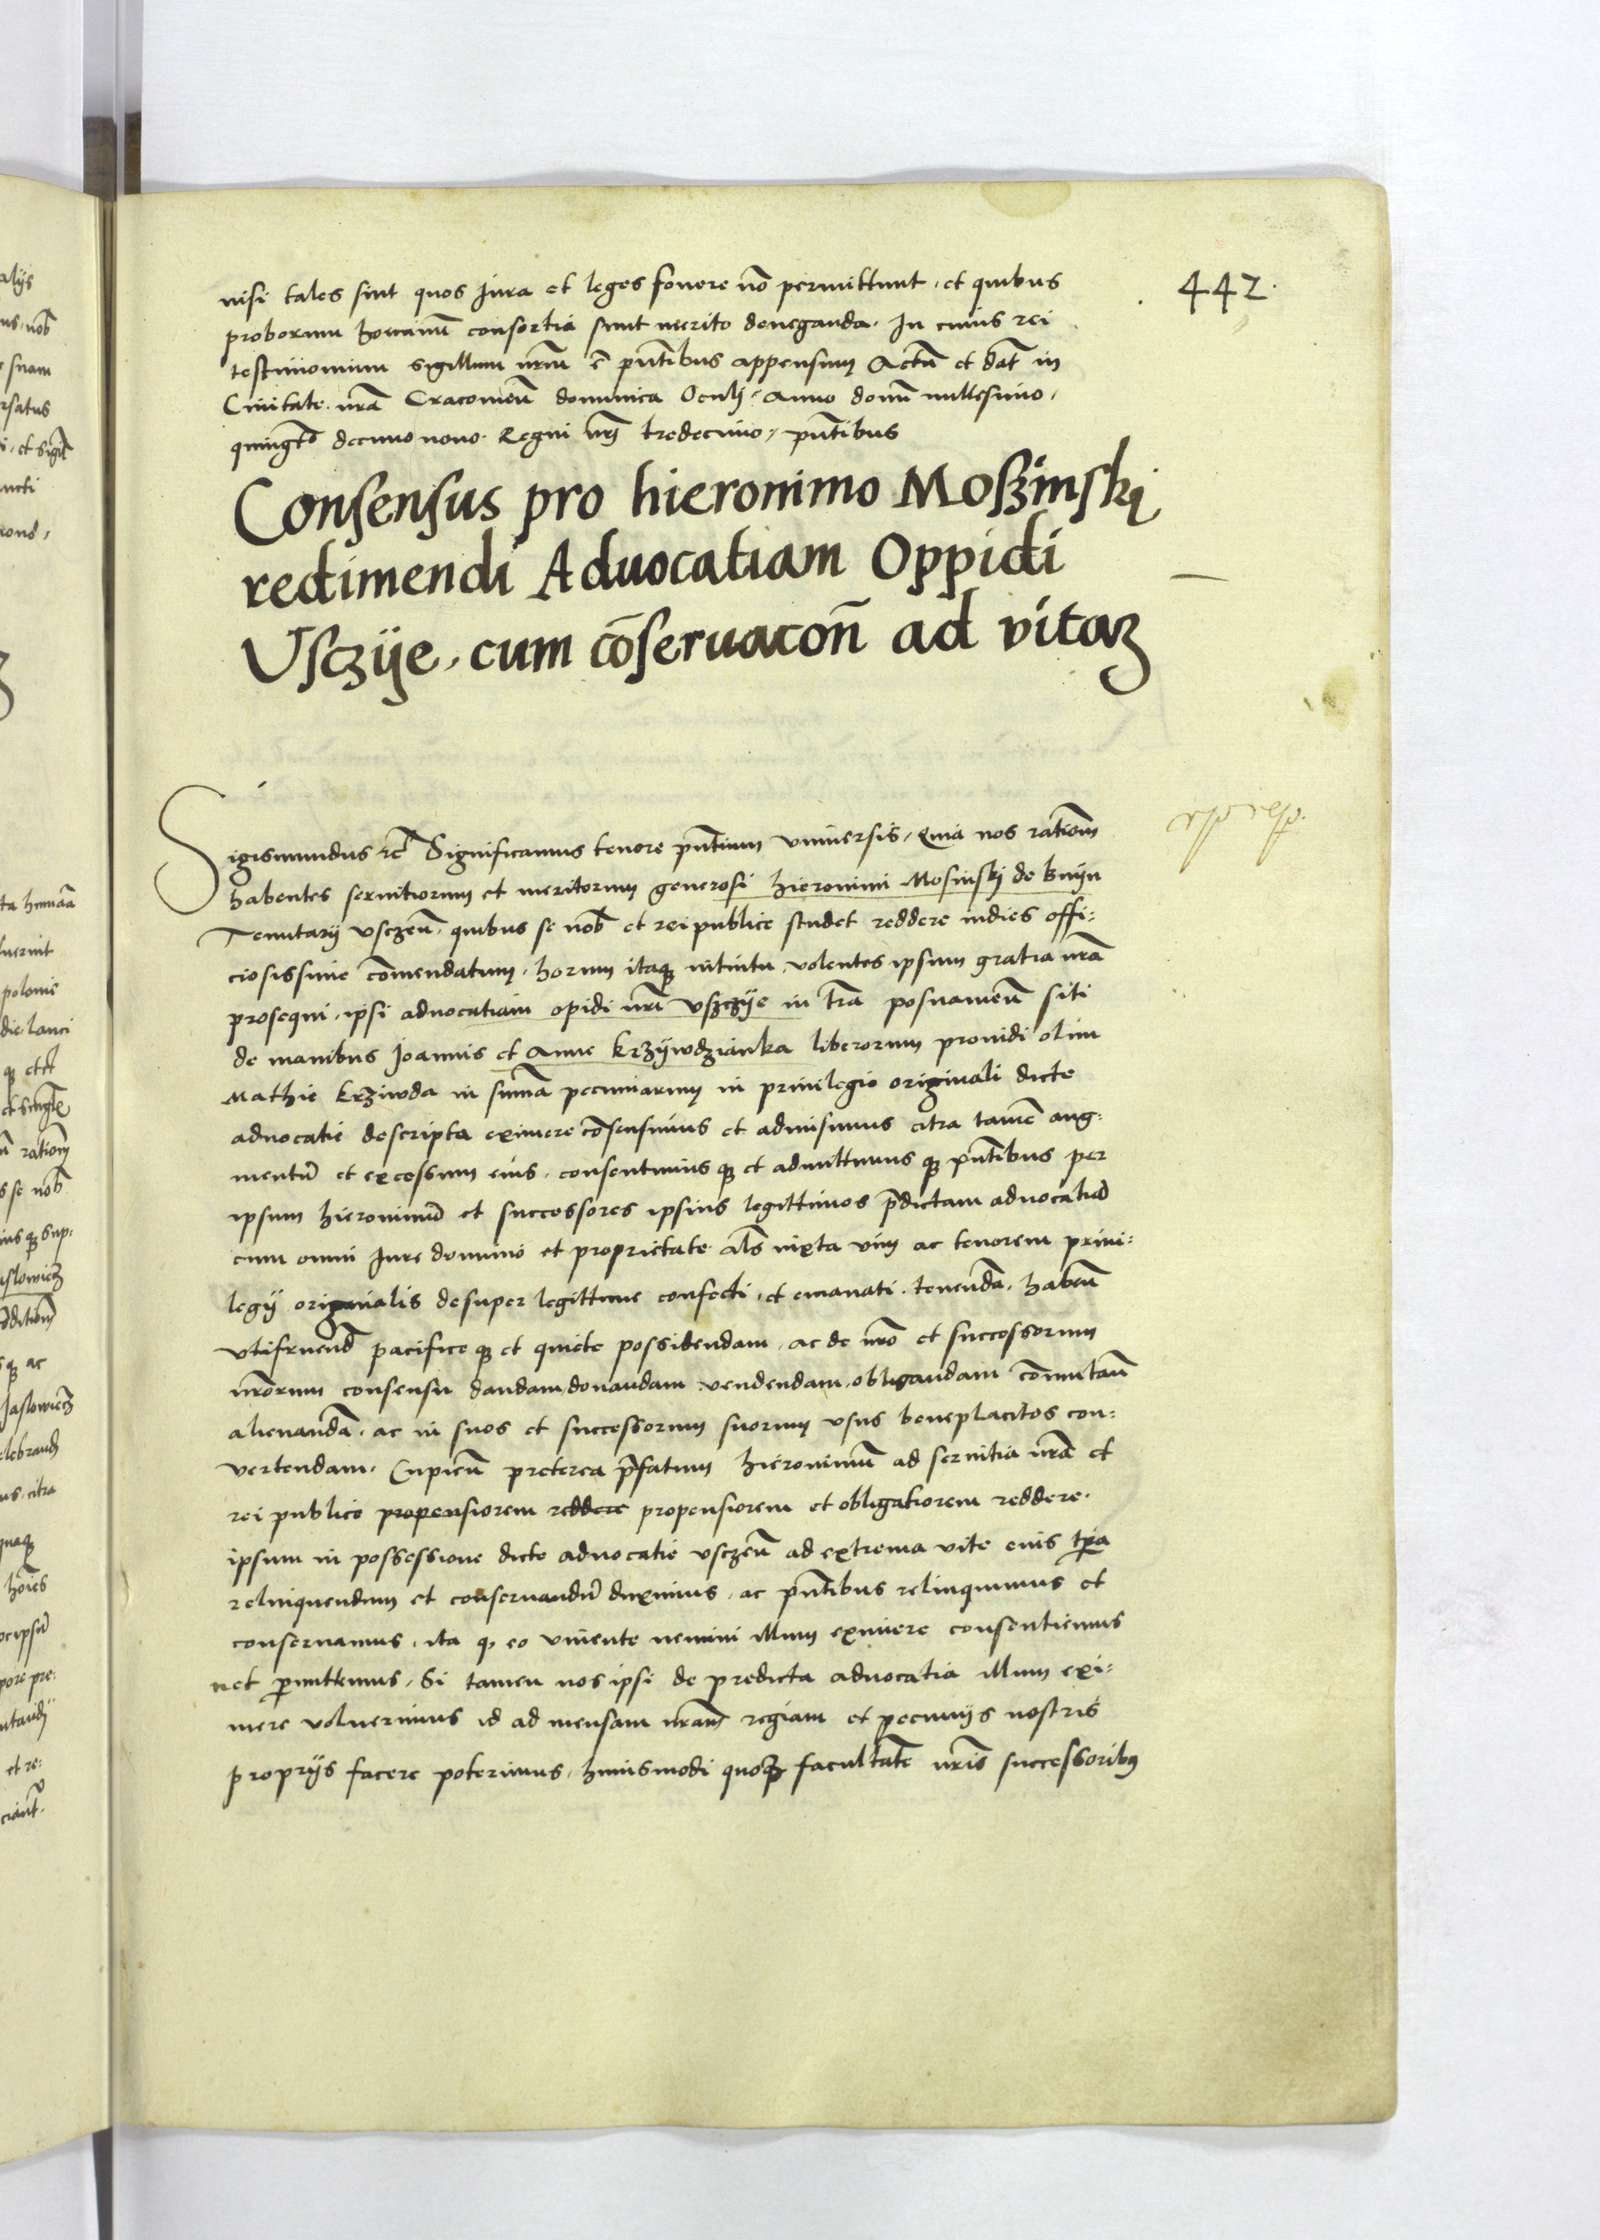 442.
nisi tales sint quos Jura et leges fovere nō permittunt, et quibus
proborum hominū consortia sunt merito deneganda. In cuius rei
testimonium sigillum nr̄m ē pn̄tibus appensum Actū et dat̄ in
Civitate nr̄a Cracovien̄ dominica Oculi, Anno domī millesimo,
quingēto decimo nono. Regni nr̄i tredecimo, pn̄tibus
Consensus pro hieronimo Moszinskj
redimendi Aduocatiam Oppidi
Usczÿe, cum cōseruacoñ ad vitaz
Sigismundus rc̄ Significamus tenore pn̄tium universis, Quia nos ratiom̄
habentes servitiorum et meritorum generosi hieronimi Mosinskj de Bnijn
Tenutarij Usczen̄, quibus se nob̄ et rei publice studet reddere indies offi:
ciosissime cōmendatum, horum itaq̨ intuitu, volentes ipsum gratia nr̄a
prosequi, ipsi advocatiam opidi nr̄i Uszczÿe in tr̄a posnanien̄ siti
de manibus Joannis et Anne krzÿwdzianka liberorum providi olim
Mathie krziwda in sum̄a pecuniarum in privilegio originali dicte
advocatie descripta eximere cōsensimus et admisimus citra tamē aug:
mentū et excessum eius, consentimus q̨ et admittimus q̨ pn̄tibus per
ipsum hieronimū et successores ipsius legittimos p̄dictam advocatiā
cum omni Jure dominio et proprietate al̄s iuxta vim ac tenorem privi:
legij originalis desuper legittime confecti, et emanati, tenendā, haben̄
utifruend̄ pacifice q̨ et quiete possidendam, ac de nr̄o et successorum
nr̄orum consensu dandam, donandam vendendam, obligandam cōmutan̄
alienandā, ac in suos et successorum suorum usus beneplacitos con:
vertendam, Cupien̄ preterea p̄fatum hieronimū ad servitia nr̄a et
rei publice propensiorem reddere propensiorem et obligatiorem reddere.
ipsum in possessione dicte advocatie usczen̄ ad extrema vite eius tp̄a
relinquendum et conservandū duximus, ac pn̄tibus relinquimus et
conservamus, ita q̨ eo vivente nemini illum eximere consentiemus
net p̄mittemus, Si tamen nos ipsi de predicta advocatia illum exi:
mere voluerimus id ad mensam nr̄am regiam et pecunijs nostris
proprijs facere poterimus, huiusmodi quoq̨ facultatē nr̄is successoribus